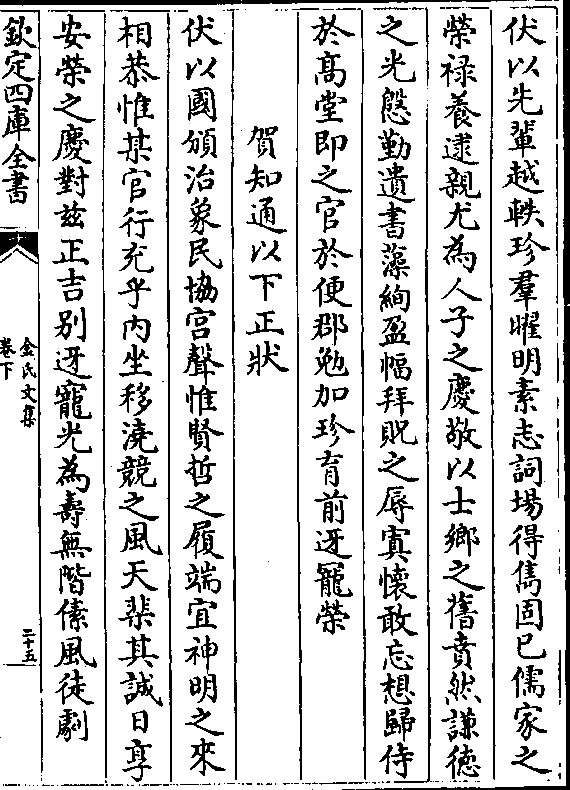 伏以先輩越軼珍羣曜明素志詞場得雋固已儒家之
榮禄養逮親尤為人子之慶敬以士鄉之舊賁然謙徳
之光慇勤遺書藻絢盈幅拜貺之辱寘懷敢忘想歸侍
於髙堂即之官於便郡勉加珍育前迓寵榮
賀知通以下正狀
伏以國頒治象民協宫聲惟賢哲之履端宜神明之來
相恭惟某官行充乎内坐移澆競之風天棐其誠日享
安榮之慶對兹正吉别迓寵光為壽無階傃風徒劇
欽定四庫全書
金氏文集
卷下
二十五